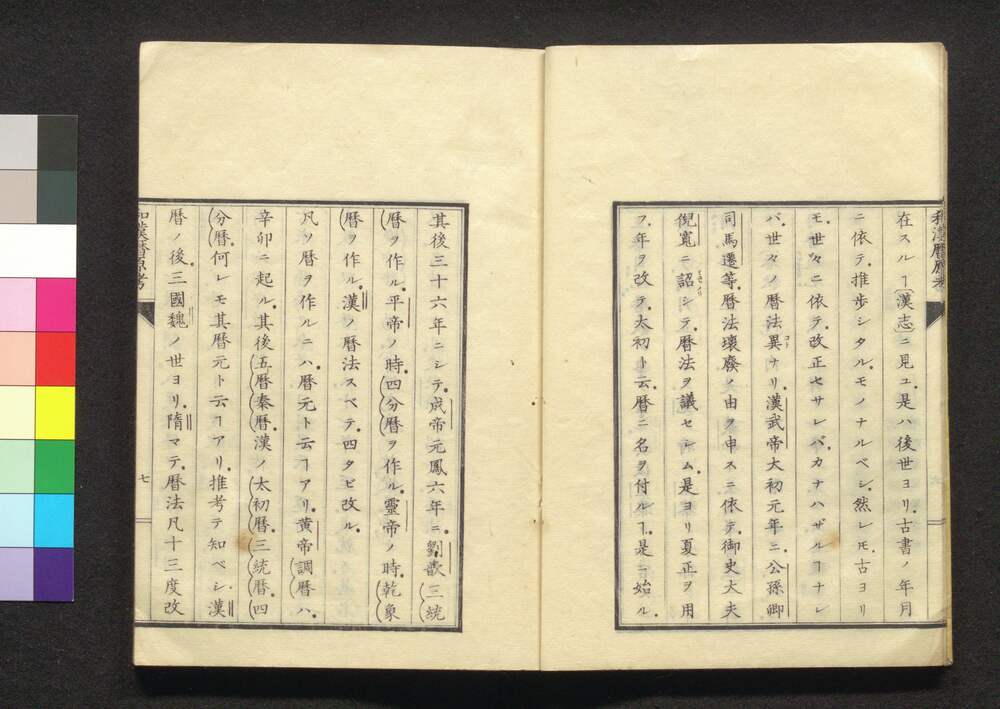 和漢暦原考
在スルヿ漢志ニ見ユ是ハ後世ヨリ古書ノ年月
ニ依テ推歩シタルモノナルベシ然レㇳモ古ヨリ
モ世々ニ依テ改正セサレバカナハザルヿナレ
バ世々ノ暦法異ナリ漢武帝大初元年ニ公孫卿
司馬遷等暦法壞廢ノ由ヲ申スニ依テ御史大夫
倪寬ニ詔シテ暦法ヲ議セシム是ヨリ夏正ヲ用
フ年ヲ改テ太初ト云暦ニ名ヲ付ルヿ是ニ始ル
其後三十六年ニシテ成帝元鳳六年ニ劉歆三統
暦ヲ作ル平帝ノ時四分暦ヲ作ル靈帝ノ時乾象
暦ヲ作ル漢ノ暦法スベテ四タビ改ル
凡ソ暦ヲ作ルニハ暦元ト云ヿアリ黄帝調暦ハ
辛卯ニ起ル其後五暦秦暦漢ノ太初暦三統暦四
分暦何レモ其暦元ト云ヿアリ推考テ知ベシ漢
暦ノ後三國魏ノ世ヨリ隋マテ暦法凡十三度改
和漢暦原考
七